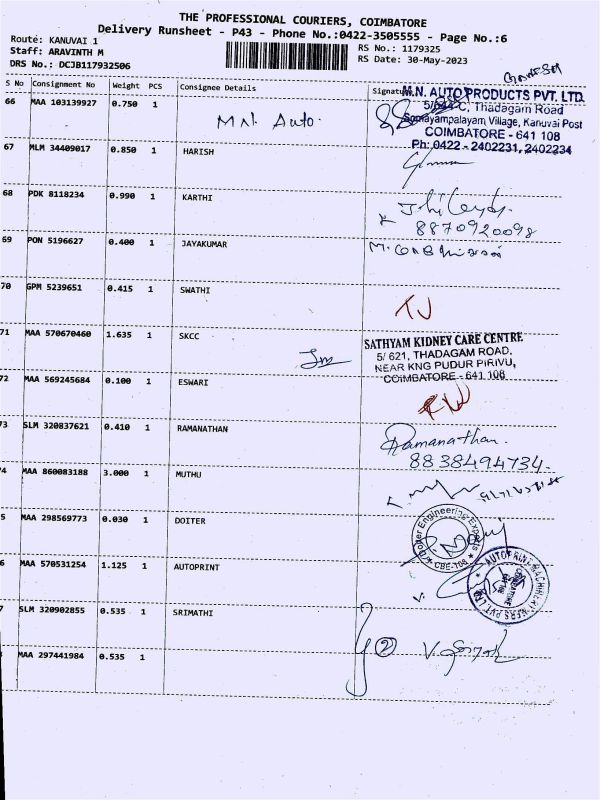 THE PROFESSIONAL COURIERS, COIMBATORE
Delivery Runsheet - P43 - Phone No.:0422-3505555 - Page No.:6
Route: KANUVAI 1
Staff: ARAVINTH M
DRS No.: DCJB117932506
RS No.: 1179325
RS Date: 30-May-2023
S No Consignment No Weight PCS Consignee Details Signature
66 MAA 103139927 0.750 1 M.N. Auto.
M.N. AUTO PRODUCTS PVT. LTD.
Thadagam Road
Somayampalayam Village, Kanuvai Post
COIMBATORE - 641 108
Ph: 0422 - 2402231, 2402234
67 MLM 34409017 0.850 1 HARISH
68 PDK 8118234 0.990 1 KARTHI
8870920098
69 PON 5196627 0.400 1 JAYAKUMAR
70 GPM 5239651 0.415 1 SWATHI
71 MAA 570670460 1.635 1 SKCC
SATHYAM KIDNEY CARE CENTRE
5/ 621, THADAGAM ROAD,
NEAR KNG PUDUR PIRIVU,
COIMBATORE - 641 108
72 MAA 569245684 0.100 1 ESWARI
73 SLM 320837621 0.410 1 RAMANATHAN
Ramanathan.
8838494734.
4 MAA 860083188 3.000 1 MUTHU
5 MAA 298569773 0.030 1 DOITER
Engineering Experts
CBE-108
6 MAA 570531254 1.125 1 AUTOPRINT
AUTOPRINT MACHINERY
PVT LTD
COIMBATORE
7 SLM 320902855 0.535 1 SRIMATHI
MAA 297441984 0.535 1
2